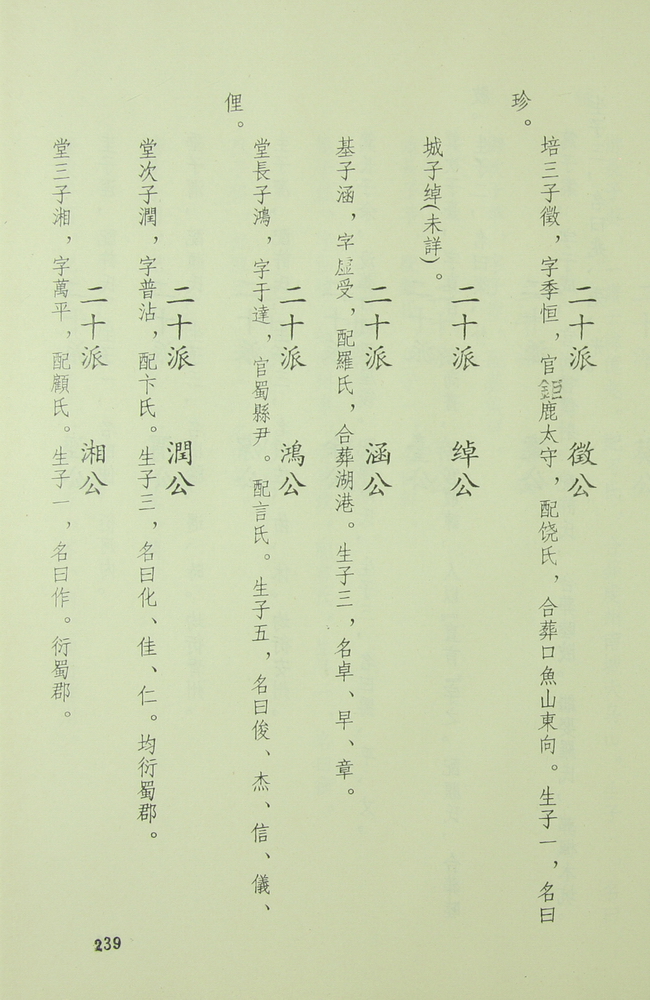 二十派 徵公
培三子徵，字季恒，官鹿太守，配饶氏，合葬口魚山東向。生子一，名曰
珍。
二十派 绰公
城子绰(未詳)。
二十派 涵公
基子涵，字虛受，配羅氏，合葬湖港。生子三，名卓、早、章。
二十派 鴻公
堂長子鴻，字于達，官蜀縣尹。配言氏。生子五，名曰俊、杰、信、儀、
俚。
二十派 潤公
堂次子潤，字普沾，配卞氏。生子三，名曰化、佳、仁。均衍蜀郡。
二十派 湘公
堂三子湘，字萬平，配顧氏。生子一，名曰作。衍蜀郡。
239